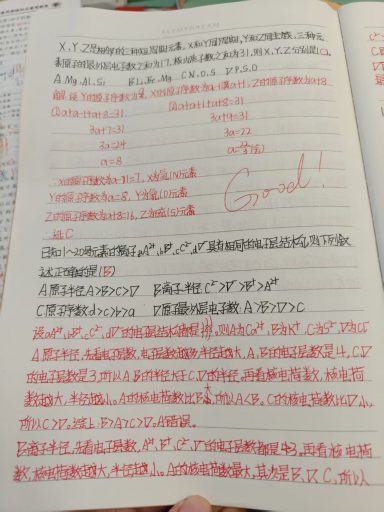 X、Y、Z是相邻的三种短周期元素,X和Y同周期,Y和Z同主族,三种元
素原子的最外层电子数之和为17,核内质子数之和为31,则X、Y、Z分别是(C)。
A. Mg、Al、Si B. Li、Be、Mg C. N、O、S D. P、S、O
解:设Y的原子序数为a,X的原子序数为a-1或a+1,Z的原子序数为a+8
(1)a+a-1+a+8=31 (2)a+a+1+a+8=31
3a+7=31 3a+9=31
3a=24 3a=22
a=8 a=22/3(舍)
∴X的原子序数为a-1=7,X为氮(N)元素
Y的原子序数为a=8,Y为氧(O)元素
Z的原子序数为a+8=16,Z为硫(S)元素
选C
Good!
已知1~20号元素的离子aA²⁺、bB⁺、cC²⁻、dD⁻具有相同的电子层结构,则下列叙
述正确的是(B)
A 原子半径A>B>C>D B 离子半径C²⁻>D⁻>B⁺>A²⁺
C 原子序数d>c>b>a D 原子最外层电子数:A>B>D>C
设aA²⁺、bB⁺、cC²⁻、dD⁻的电子层结构是,则A为Ca²⁺,B为K⁺,C为S²⁻,D为Cl⁻
A原子半径,先看电子层数,电子层数越多半径越大,A、B的电子层数是4,C、D
的电子层数是3,所以A、B的半径大于C、D的半径。再看核电荷数,核电荷
数越大,半径越小。A的核电荷数比B大,所以A<B。C的核电荷数比D小,
所以C>D。综上:B>A>C>D。A错误。
B离子半径,先看电子层数,A²⁺、B⁺、C²⁻、D⁻的电子层数都是3,再看核电荷
数,核电荷数越大,半径越小。A的核电荷数最大,其次是B、D、C,所以